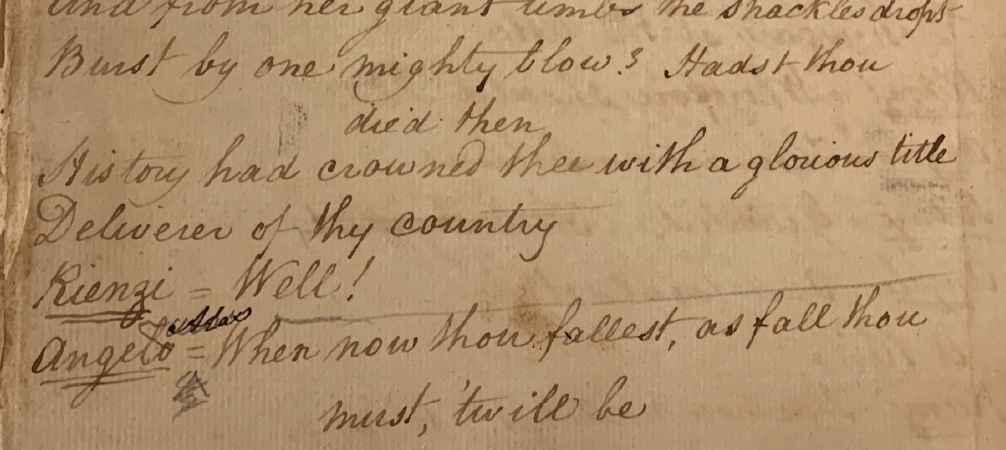 And from her giant limbs the shackles dropt
Burst by one mighty blow? Hadst thou
died then
History had crowned thee with a glorious title
Deliverer of thy country
Rienzi = Well!
Alas
Angelo = When now thou fallest, as fall thou
must, 'twill be